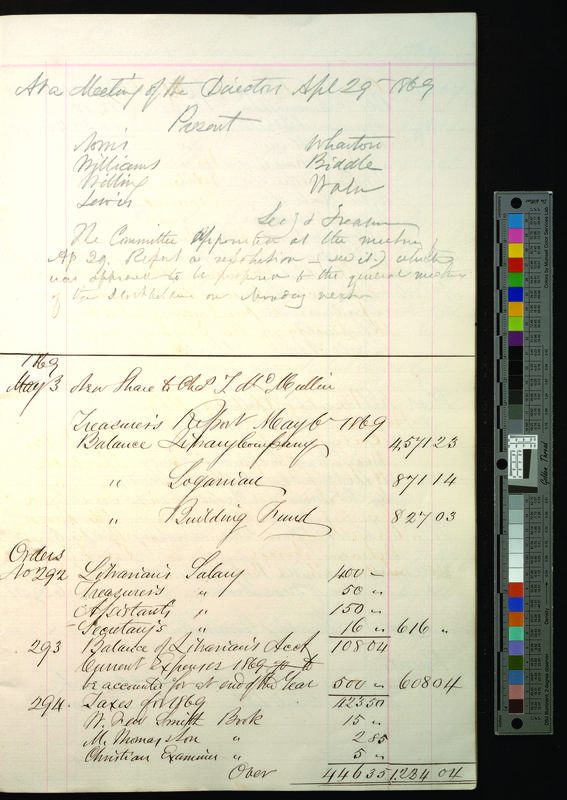 At a Meeting of the Directors Apl 29 1869
Present
Norris Wharton
Williams Biddle
Willing Waln
Lewis
Secy & Treasurer
The Committee appointed at the meeting
Ap 29. Report a resolution (see it) which
was approved to be proposed to the general meeting
of the Stockholders on Monday next
1869
May 3 New Share to Chas T. McMullin
Treasurer's Report May 6 1869
Balance Library Company 4571 23
" Loganian 871 14
" Building Fund 827 03
Orders
No 292 Librarian's Salary 400 "
Treasurer's " 50 "
Assistants " 150 "
Secretary's " 16 " 616 "
293 Balance of Librarian's Acct 108 04
Current Expenses 1869-70 to
be accounted for at end of the Year 500 " 608 04
294 Taxes for 1869 423 50
W. Smith Book 15 "
M. Thomas & Son " 2 85
Christian Examiner " 5 "
Over 446 35 1,224 04